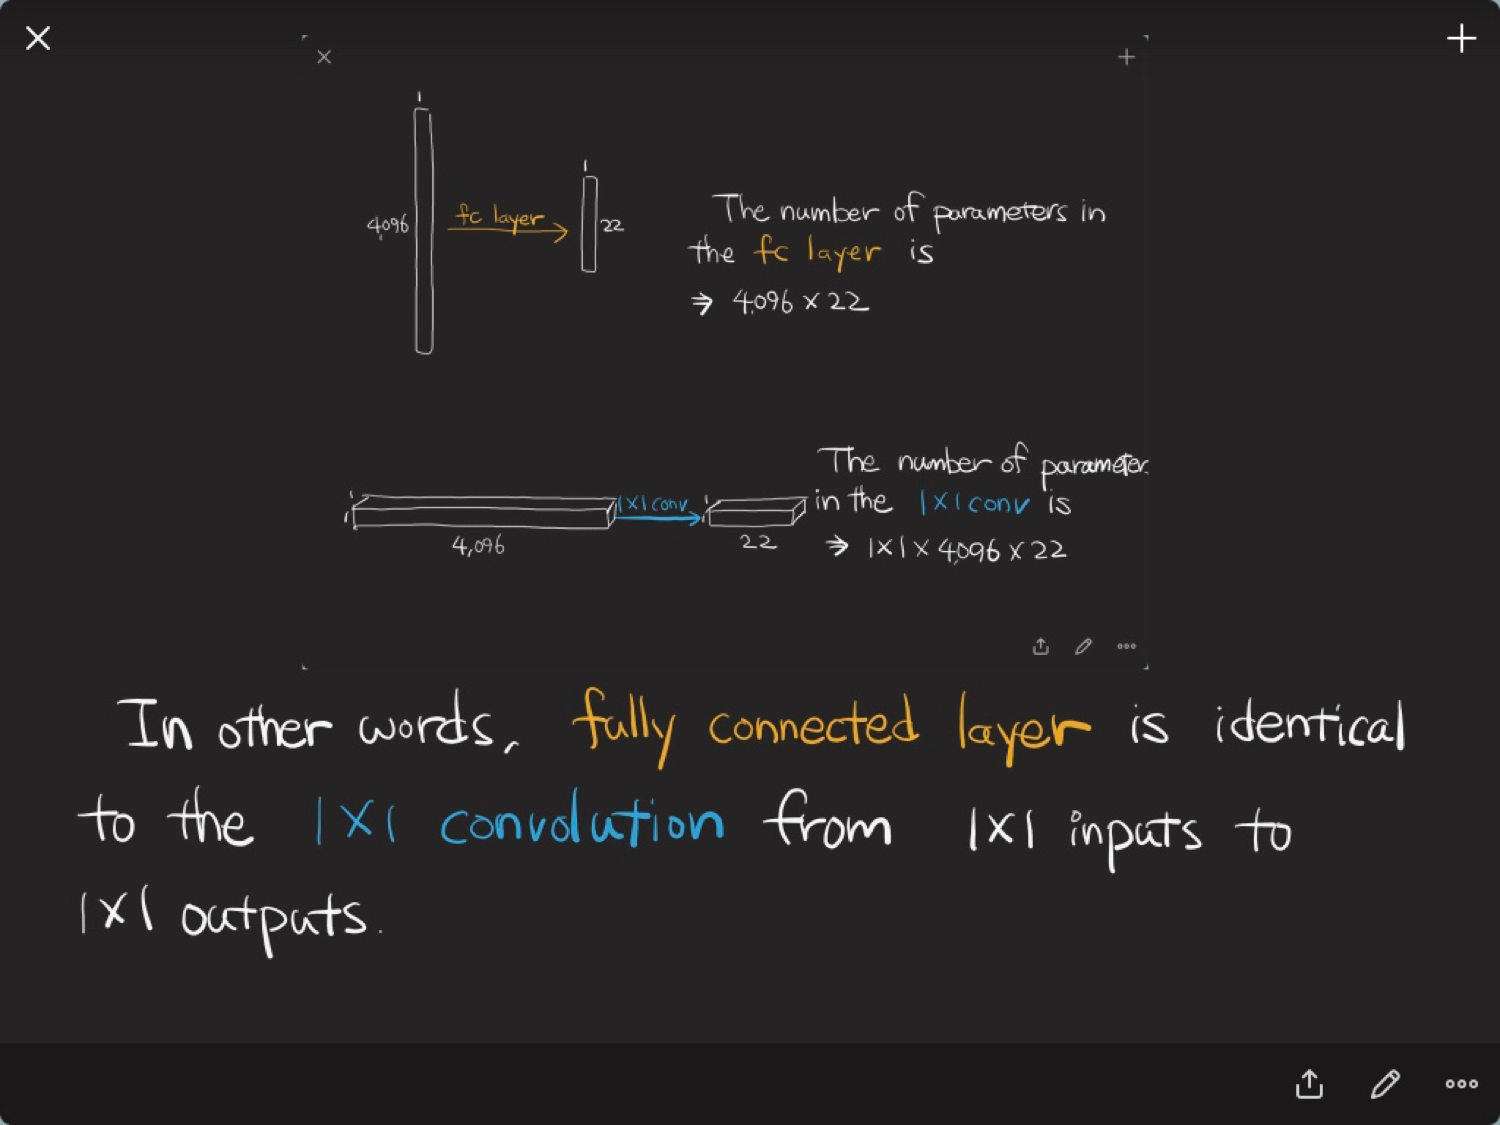 1
4,096
fc layer
1
22
The number of parameters in
the fc layer is
⇒ 4,096 × 22
1
1
4,096
1×1 conv
1
1
22
The number of parameter
in the 1×1 conv is
⇒ 1×1× 4,096 × 22
In other words, fully connected layer is identical
to the 1×1 convolution from 1×1 inputs to
1×1 outputs.